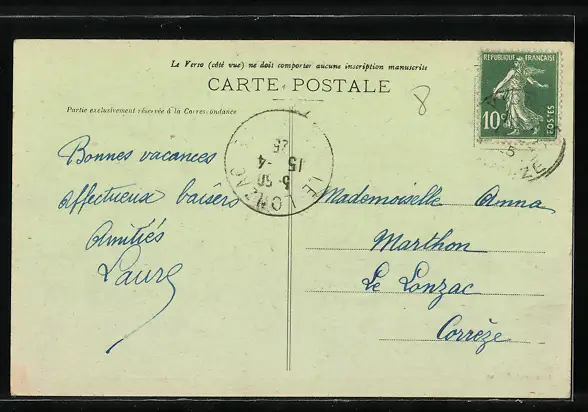 Le Verso (côté vue) ne doit comporter aucune inscription manuscrite
CARTE POSTALE
Partie exclusivement réservée à la Correspondance
8
REPUBLIQUE FRANÇAISE
10c
POSTES
LE LONZAC
5·50
15-4
26
Bonnes vacances
affectueux baisers
Amitiés
Laure
Mademoiselle Anna
Marthon
Le Lonzac
Corrèze